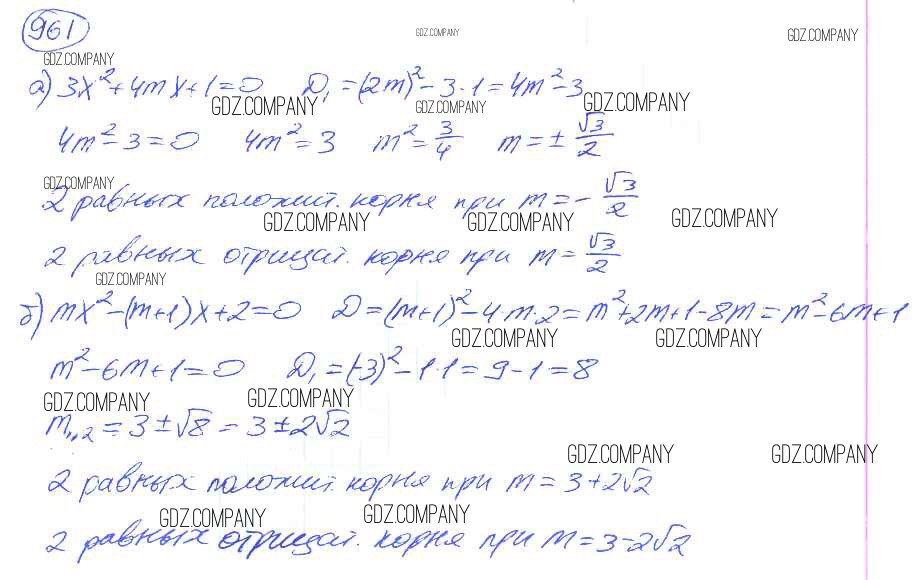 961
GDZ.COMPANY GDZ.COMPANY
GDZ.COMPANY
а) 3x² + 4mx + 1 = 0 D₁ = (2m)² - 3·1 = 4m² - 3
GDZ.COMPANY GDZ.COMPANY GDZ.COMPANY
4m² - 3 = 0 4m² = 3 m² = 3/4 m = ± √3/2
GDZ.COMPANY
2 равных положит. корня при m = - √3/2
GDZ.COMPANY GDZ.COMPANY GDZ.COMPANY
2 равных отрицат. корня при m = √3/2
GDZ.COMPANY
б) mx² - (m+1)x + 2 = 0 D = (m+1)² - 4·m·2 = m² + 2m + 1 - 8m = m² - 6m + 1
GDZ.COMPANY GDZ.COMPANY
m² - 6m + 1 = 0 D₁ = (-3)² - 1·1 = 9 - 1 = 8
GDZ.COMPANY GDZ.COMPANY
m₁,₂ = 3 ± √8 = 3 ± 2√2
GDZ.COMPANY GDZ.COMPANY
2 равных положит. корня при m = 3 + 2√2
GDZ.COMPANY GDZ.COMPANY
2 равных отрицат. корня при m = 3 - 2√2